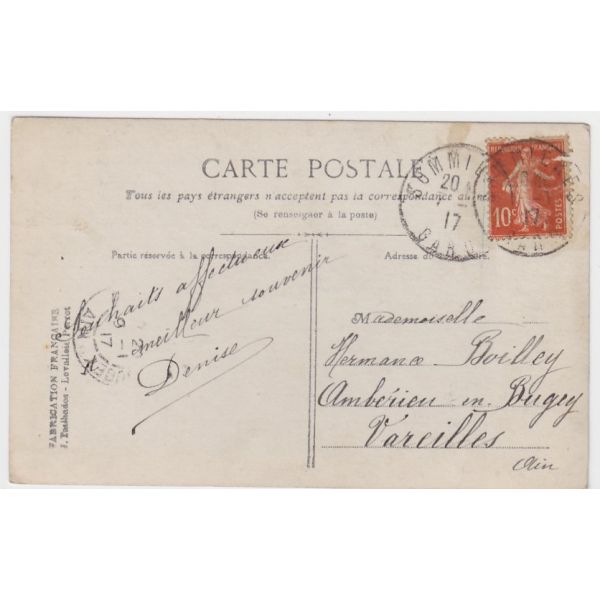 CARTE POSTALE
Tous les pays étrangers n'acceptent pas la correspondance au
(Se renseigner à la poste)
Partie réservée à la correspondance
Adresse du
REPUBLIQUE FRANÇAISE
10c
POSTES
SOMMI
20
17
GARD
17
Souhaits affectueux
& meilleur souvenir
Denise
Mademoiselle
Hermance Boilley
Ambérieu en Bugey
Vareilles
Ain
FABRICATION FRANÇAISE
Levallois-Perret
AIN